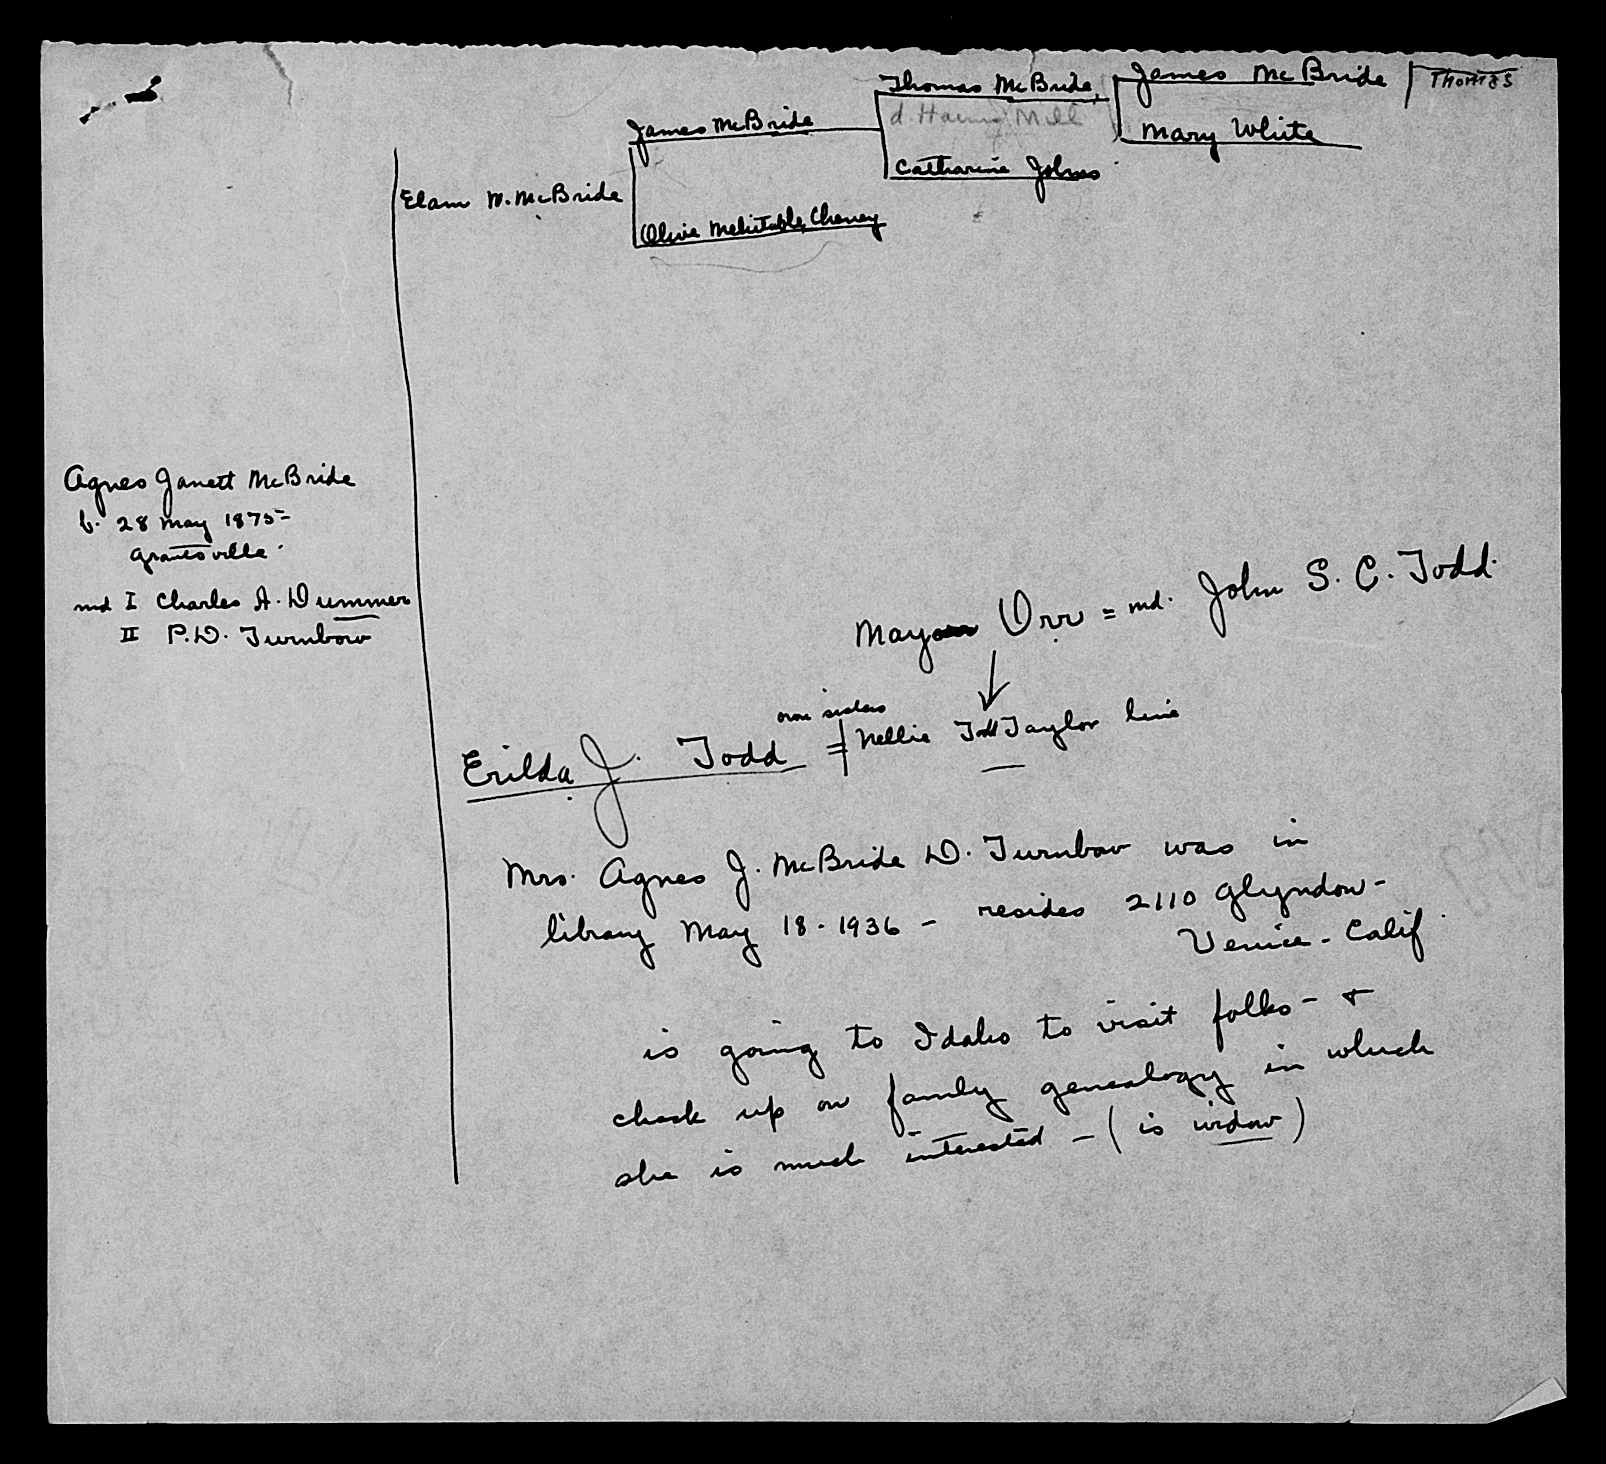 Thomas McBride, James McBride THOMAS
d. Hauns Mill
James McBride Mary White
Catharine Johns
Elam W. McBride
Olive Mehitable Cheney
Agnes Janett McBride
b. 28 May 1875
Grantsville
md I Charles A. Dummer
II P.D. Turnbow
May Orr = md. John S. C. Todd
own sisters
Erilda J. Todd = Nellie Todd Taylor line
Mrs. Agnes J. McBride D. Turnbow was in
library May 18 - 1936 - resides 2110 Glyndon -
Venice - Calif.
is going to Idaho to visit folks - &
check up on family genealogy in which
she is much interested - (is widow)